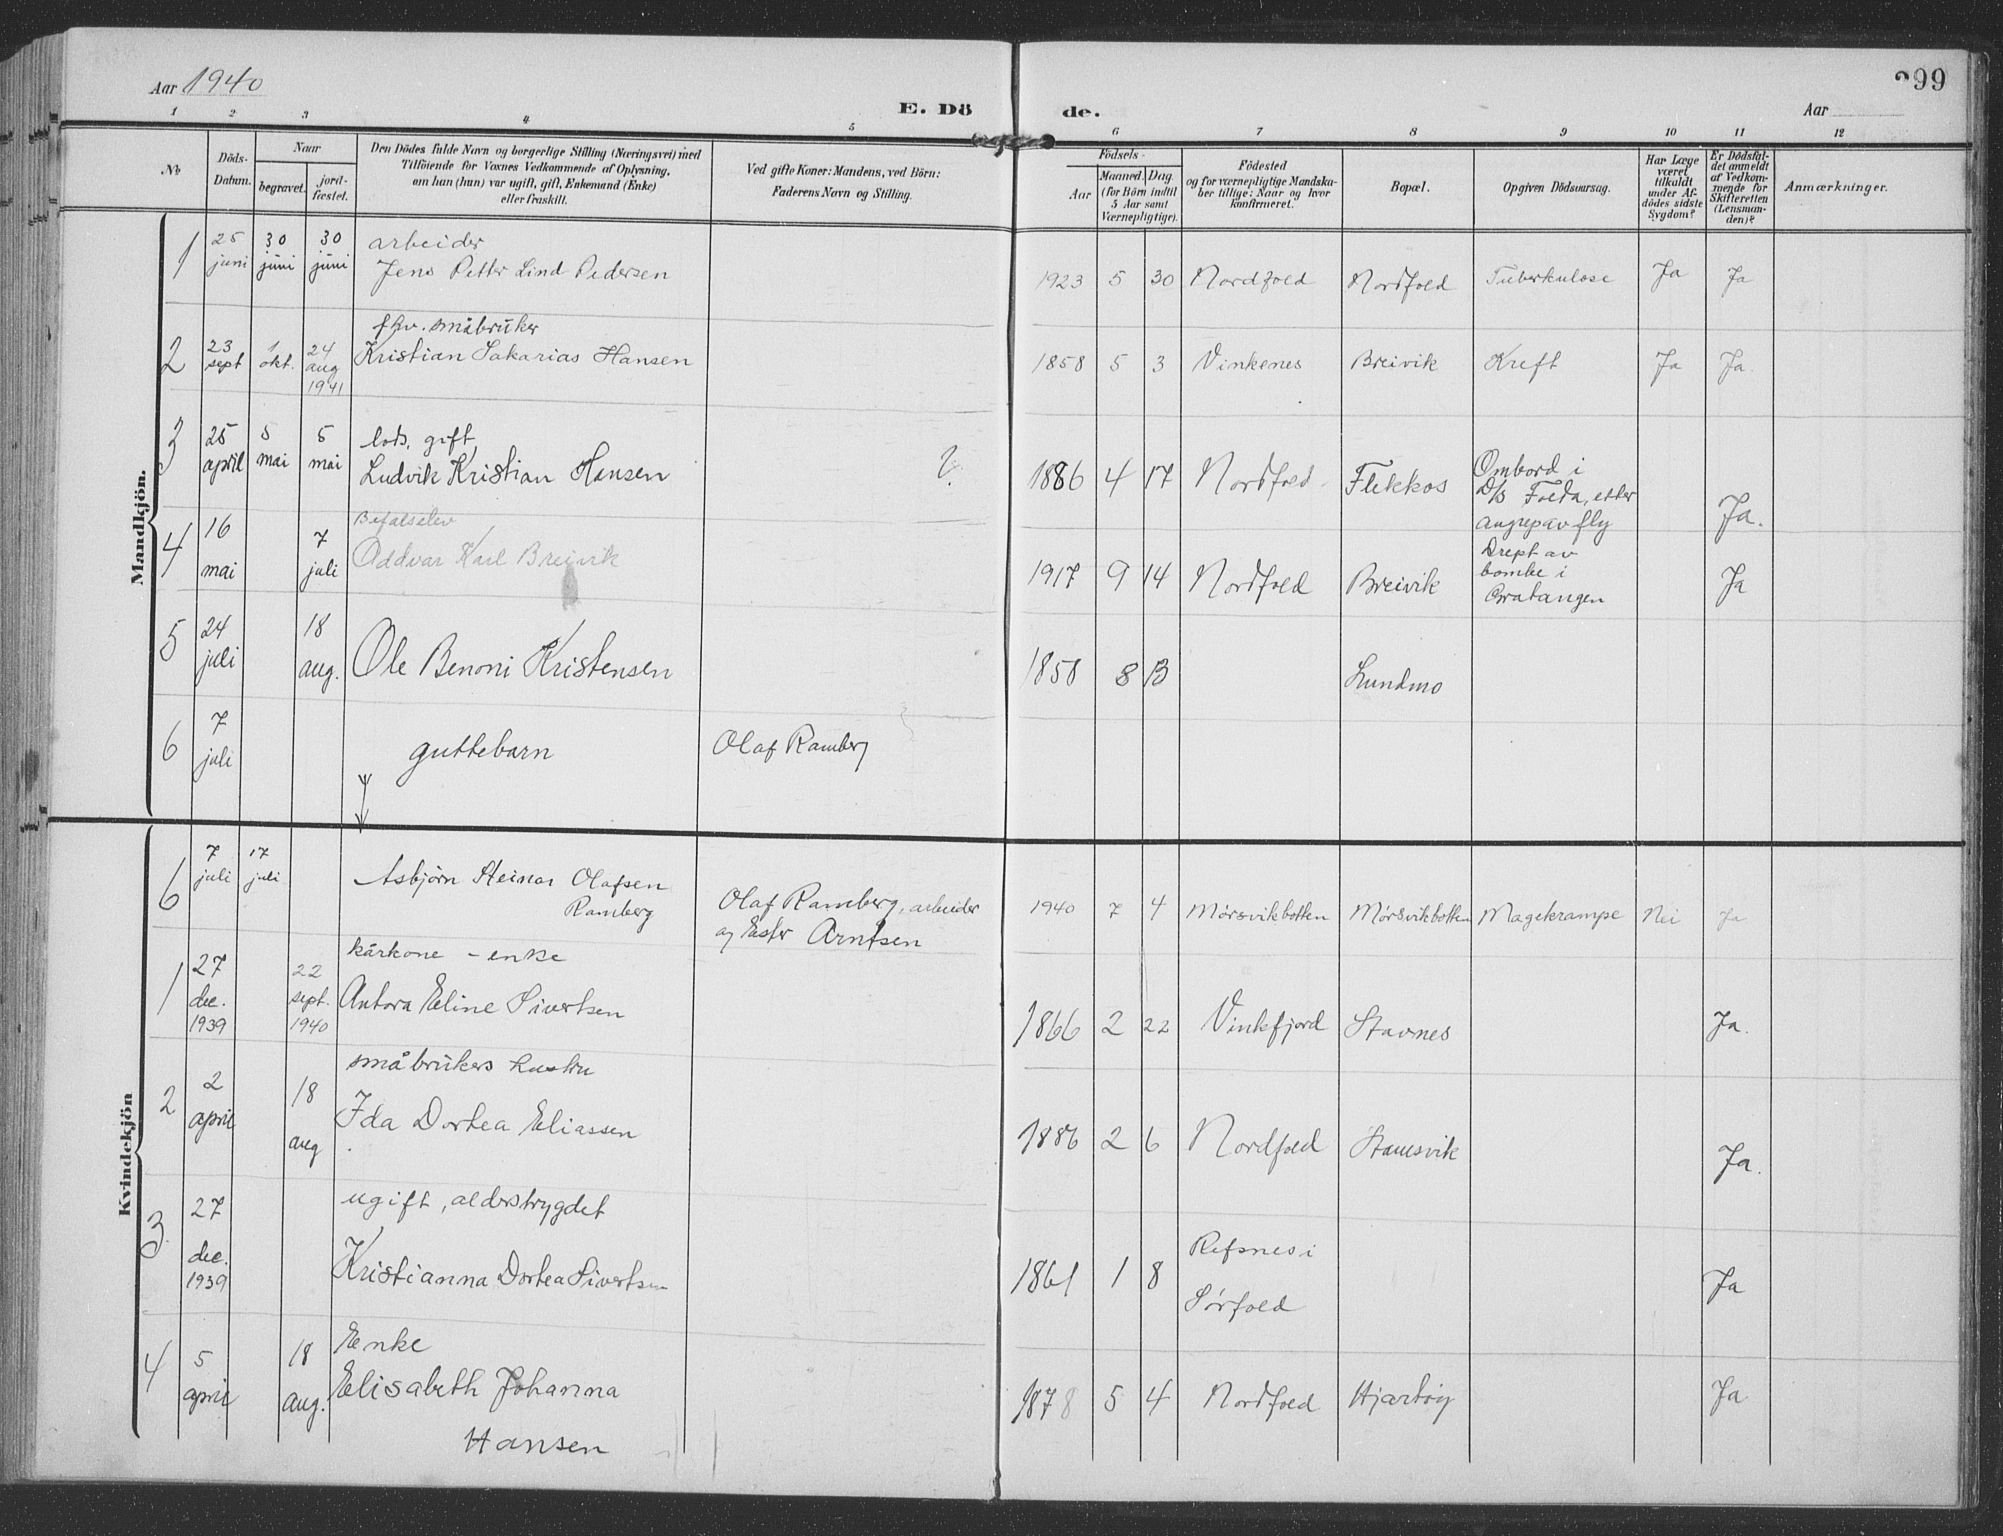 Aar 1940
E. Dö
de.
Aar
299
1 2 3 4 5 6 7 8 9 10 11 12
No
Döds-
Datum.
Naar
begravet.
jord-
fæstet.
Den Dödes fulde Navn og borgerlige Stilling (Næringsvei) med
Tilföiende for Voxnes Vedkommende af Oplysning,
om han (hun) var ugift, gift, Enkemand (Enke)
eller fraskilt.
Ved gifte Koner: Mandens, ved Börn:
Faderens Navn og Stilling.
Födsels-
Aar
Maaned. Dag.
(for Börn indtil
5 Aar samt
Værnepligtige).
Födested
og for værnepligtige Mandska-
ber tillige: Naar og hvor
konfirmeret.
Bopæl.
Opgiven Dödsaarsag.
Har Læge
været
tilkaldt
under Af-
dödes sidste
Sygdom?
Er Dödsfal-
det anmeldt
af Vedkom-
mende for
Skifteretten
(Lensman-
den)?
Anmærkninger.
Mandkjön.
1 25 juni 30 juni 30 juni arbeider
Jens Petter Lind Pedersen 1923 5 30 Nordfold Nordfold Tuberkulose Ja Ja
2 23 sept 1 okt. 24 aug 1941 fhv. småbruker
Kristian Sakarias Hansen 1858 5 3 Vinkenes Breivik Kreft Ja Ja.
3 25 april 5 mai 5 mai lods, gift
Ludvik Kristian Hansen ? 1886 4 17 Nordfold Flekkos Ombord i
D/S Folda, etter
angrep av fly Ja.
4 16 mai 7 juli Befalselev
Oddvar Karl Breivik 1917 9 14 Nordfold Breivik Drept av
bombe i
Gratangen Ja
5 24 juli 18 aug. Ole Benoni Kristensen 1858 8 13 Lundmo
6 7 juli guttebarn Olaf Ramberg
Kvindekjön
6 7 juli 17 juli Asbjørn Steinar Olafsen
Ramberg Olaf Ramberg, arbeider
og Ester Arntsen 1940 7 4 Mørsvikbotten Mørsvikbotten Magekrampe Nei Ja
1 27 dec. 1939 22 sept. 1940 kårkone - enke
Antora Eline Sivertsen 1866 2 22 Vinkfjord Stavnes Ja.
2 2 april 18 aug småbrukers hustru
Ida Dortea Eliassen 1886 2 6 Nordfold Stamsvik Ja.
3 27 dec. 1939 ugift, alderstrygdet
Kristianna Dortea Sivertsen 1861 1 8 Refsnes i
Sørfold Ja
4 5 april 18 aug. Enke
Elisabeth Johanna
Hansen 1878 5 4 Nordfold Hjartøy Ja